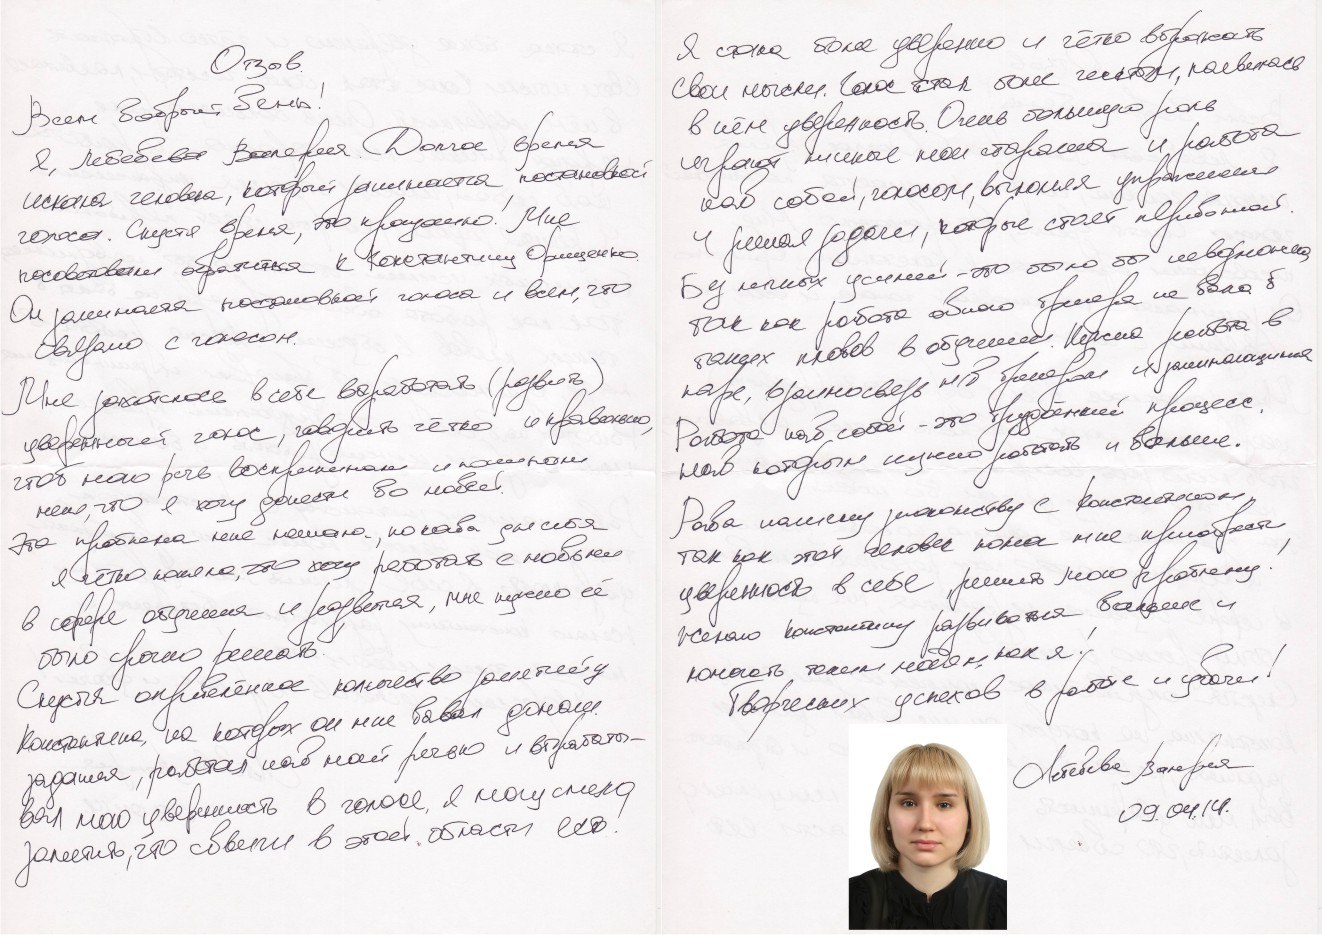 Отзыв.
Всем добрый день!
Я, Лебедева Валерия. Долгое время
искала человека, который занимается постановкой
голоса. Спустя время, это произошло! Мне
посоветовали обратиться к Константину Орищенко.
Он занимается постановкой голоса и всем, что
связано с голосом.
Мне захотелось в себе выработать (развить)
уверенный голос, говорить чётко и правильно,
чтоб мою речь воспринимали и понимали
меня, что я хочу донести до людей.
Эта проблема мне мешала, но когда для себя
я чётко поняла, что хочу работать с людьми
в сфере обучения и развития, мне нужно её
было срочно решать.
Спустя определённое количество занятий у
Константина, на которых он мне давал домаш.
задания, работал над моей речью и вырабаты-
вал мою уверенность в голосе, я могу смело
заметить, что сдвиги в этой области есть!
Я стала более уверенно и чётко выражать
свои мысли. Голос стал более чистым, появилась
в нём уверенность. Очень большую роль
играют личные мои старания и работа
над собой, голосом, выполняя упражнения
и решая задачи, которые стоят передо мной.
Без личных усилий - это было бы невозможно
так как работа одного тренера не дала б
таких плодов в обучении. Нужна работа в
паре, взаимосвязь м/д тренером и занимающимся
Работа над собой - это трудоёмкий процесс,
над которым нужно работать и дальше.
Рада нашему знакомству с Константином,
так как этот человек помог мне приобрести
уверенность в себе, решить мою проблему.
Желаю Константину развиваться дальше и
помогать таким людям, как я!
Творческих успехов в работе и удачи!
Лебедева Валерия
09.04.14.